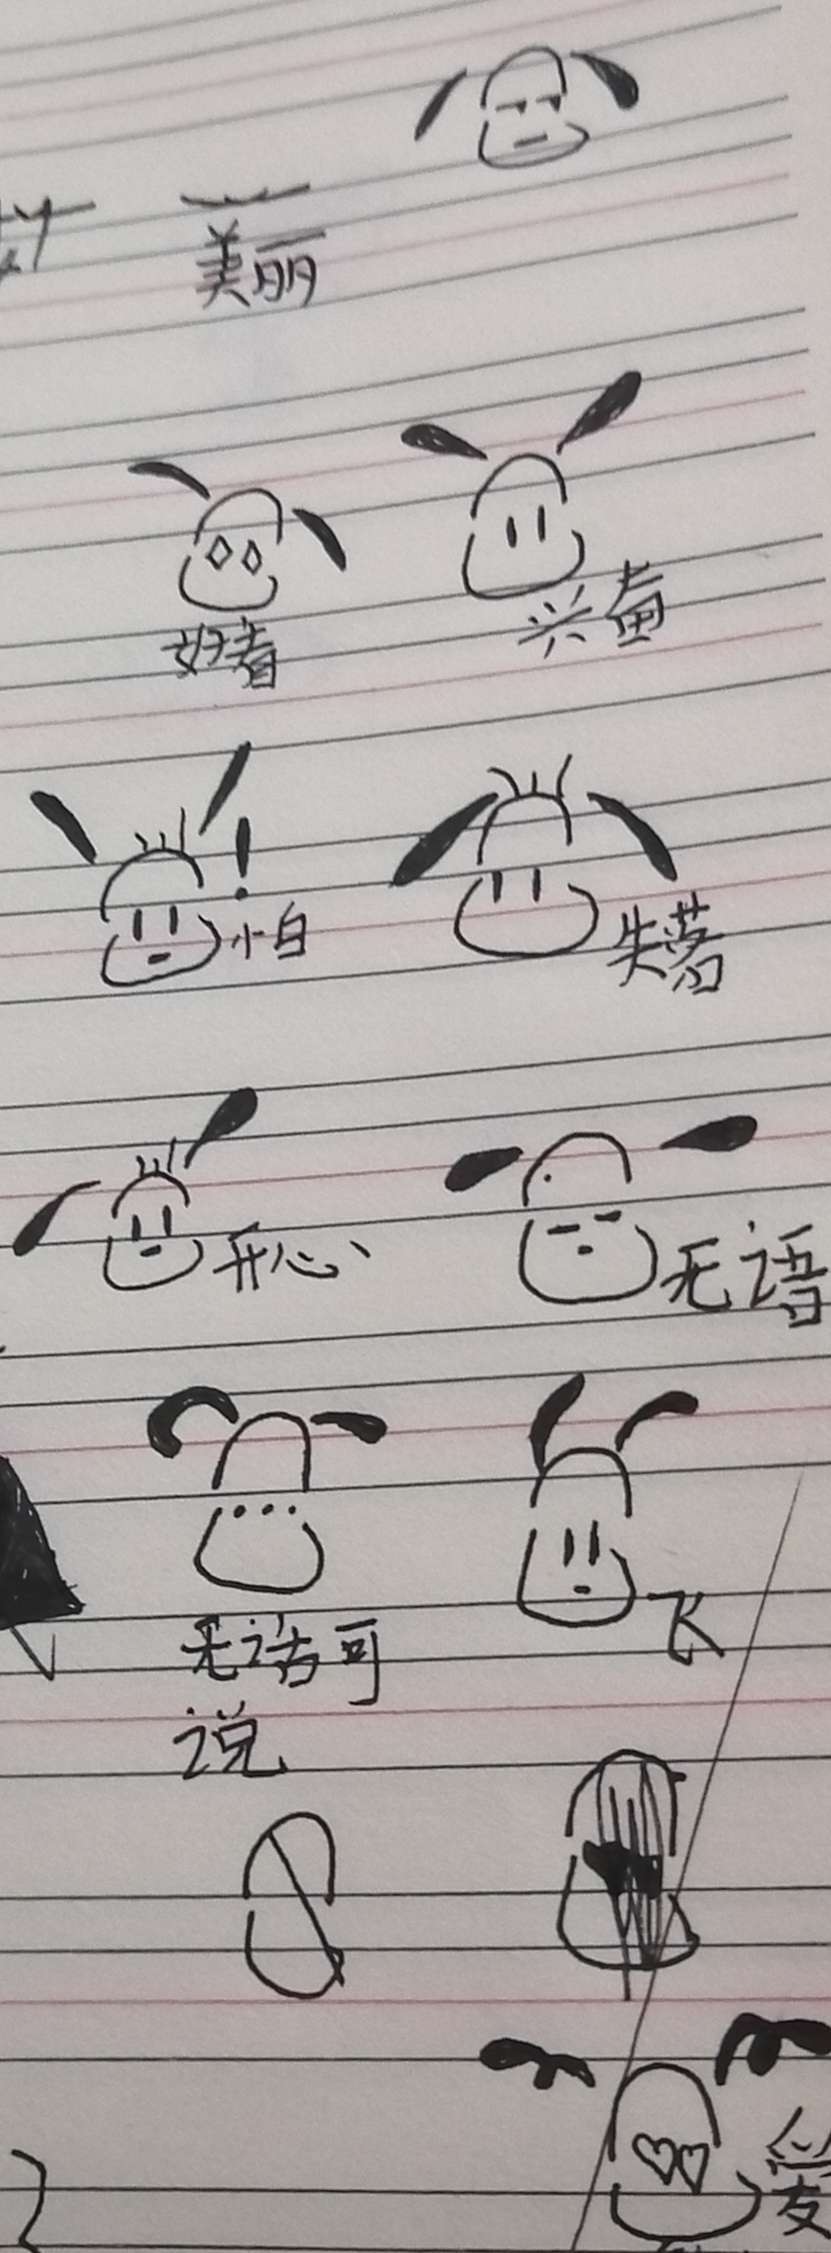 美丽
兴奋
好看
怕
失落
开心
无语
无话可
说
飞
爱